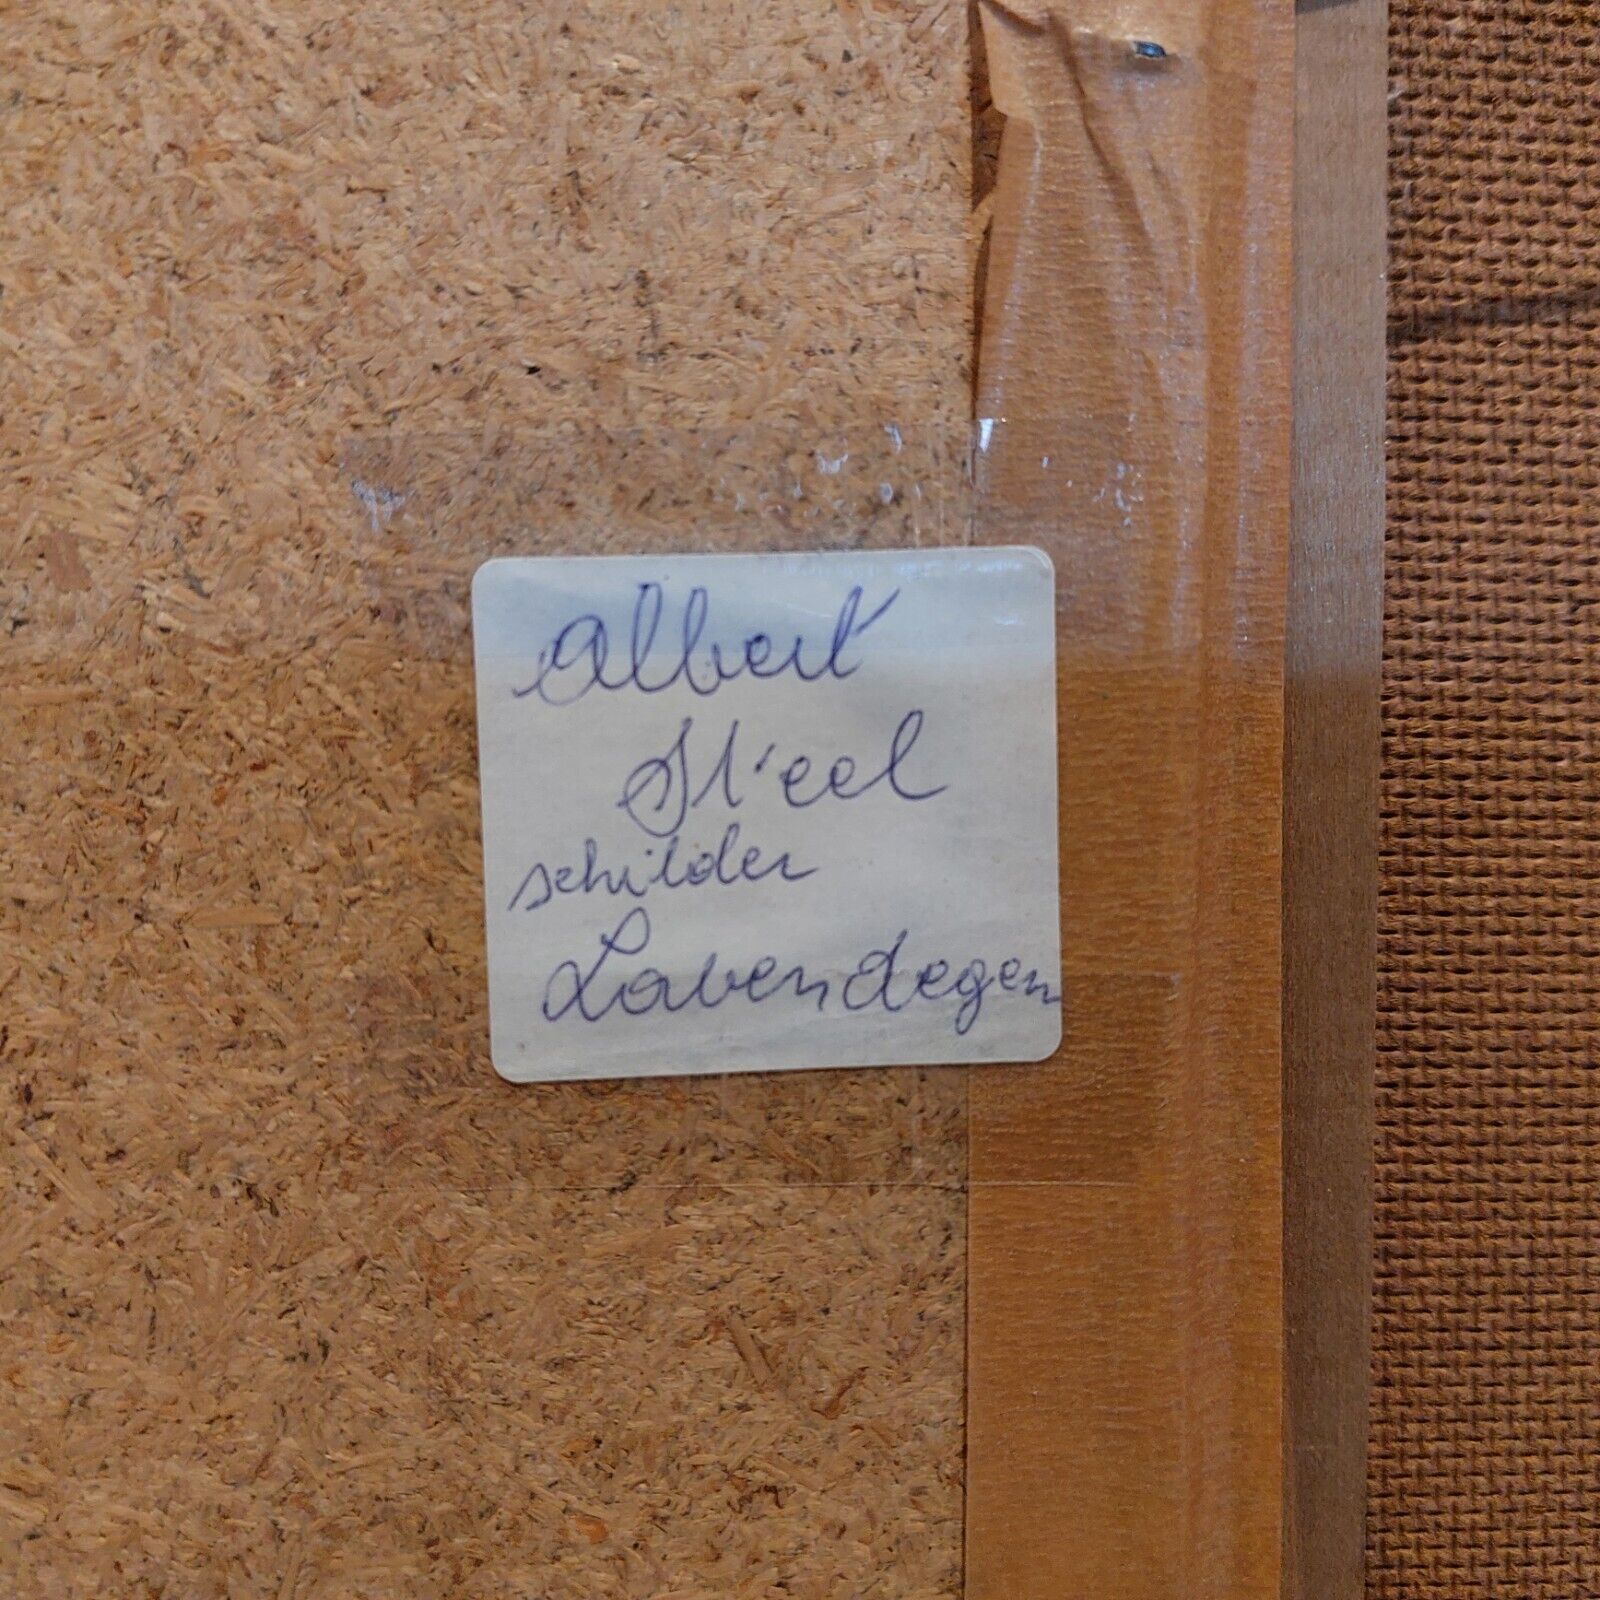 Albert
St'eel
schilder
Lavendegen